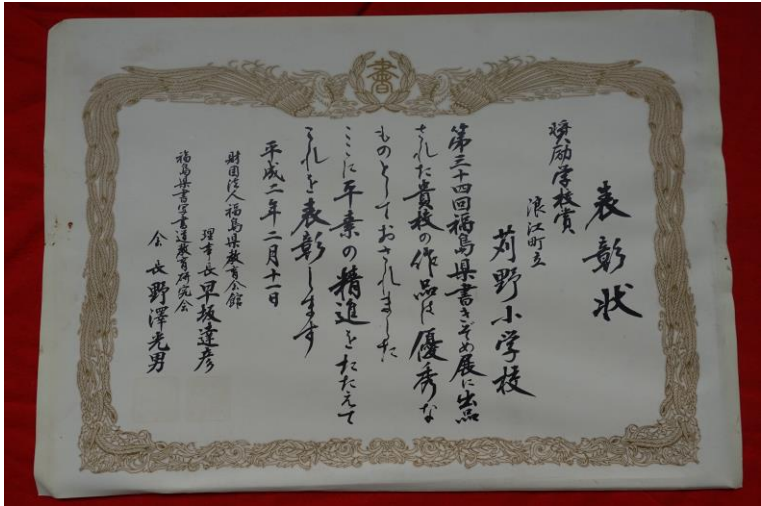 書
表彰状
奨励学校賞
浪江町立
苅野小学校
第三十四回福島県書きぞめ展に出品
された貴校の作品は優秀な
ものとしておされました
ここに平素の精進をたたえて
これを表彰します
平成二年二月十一日
財団法人福島県教育会館
理事長早坂達彦
福島県書写書道教育研究会
会長野澤光男